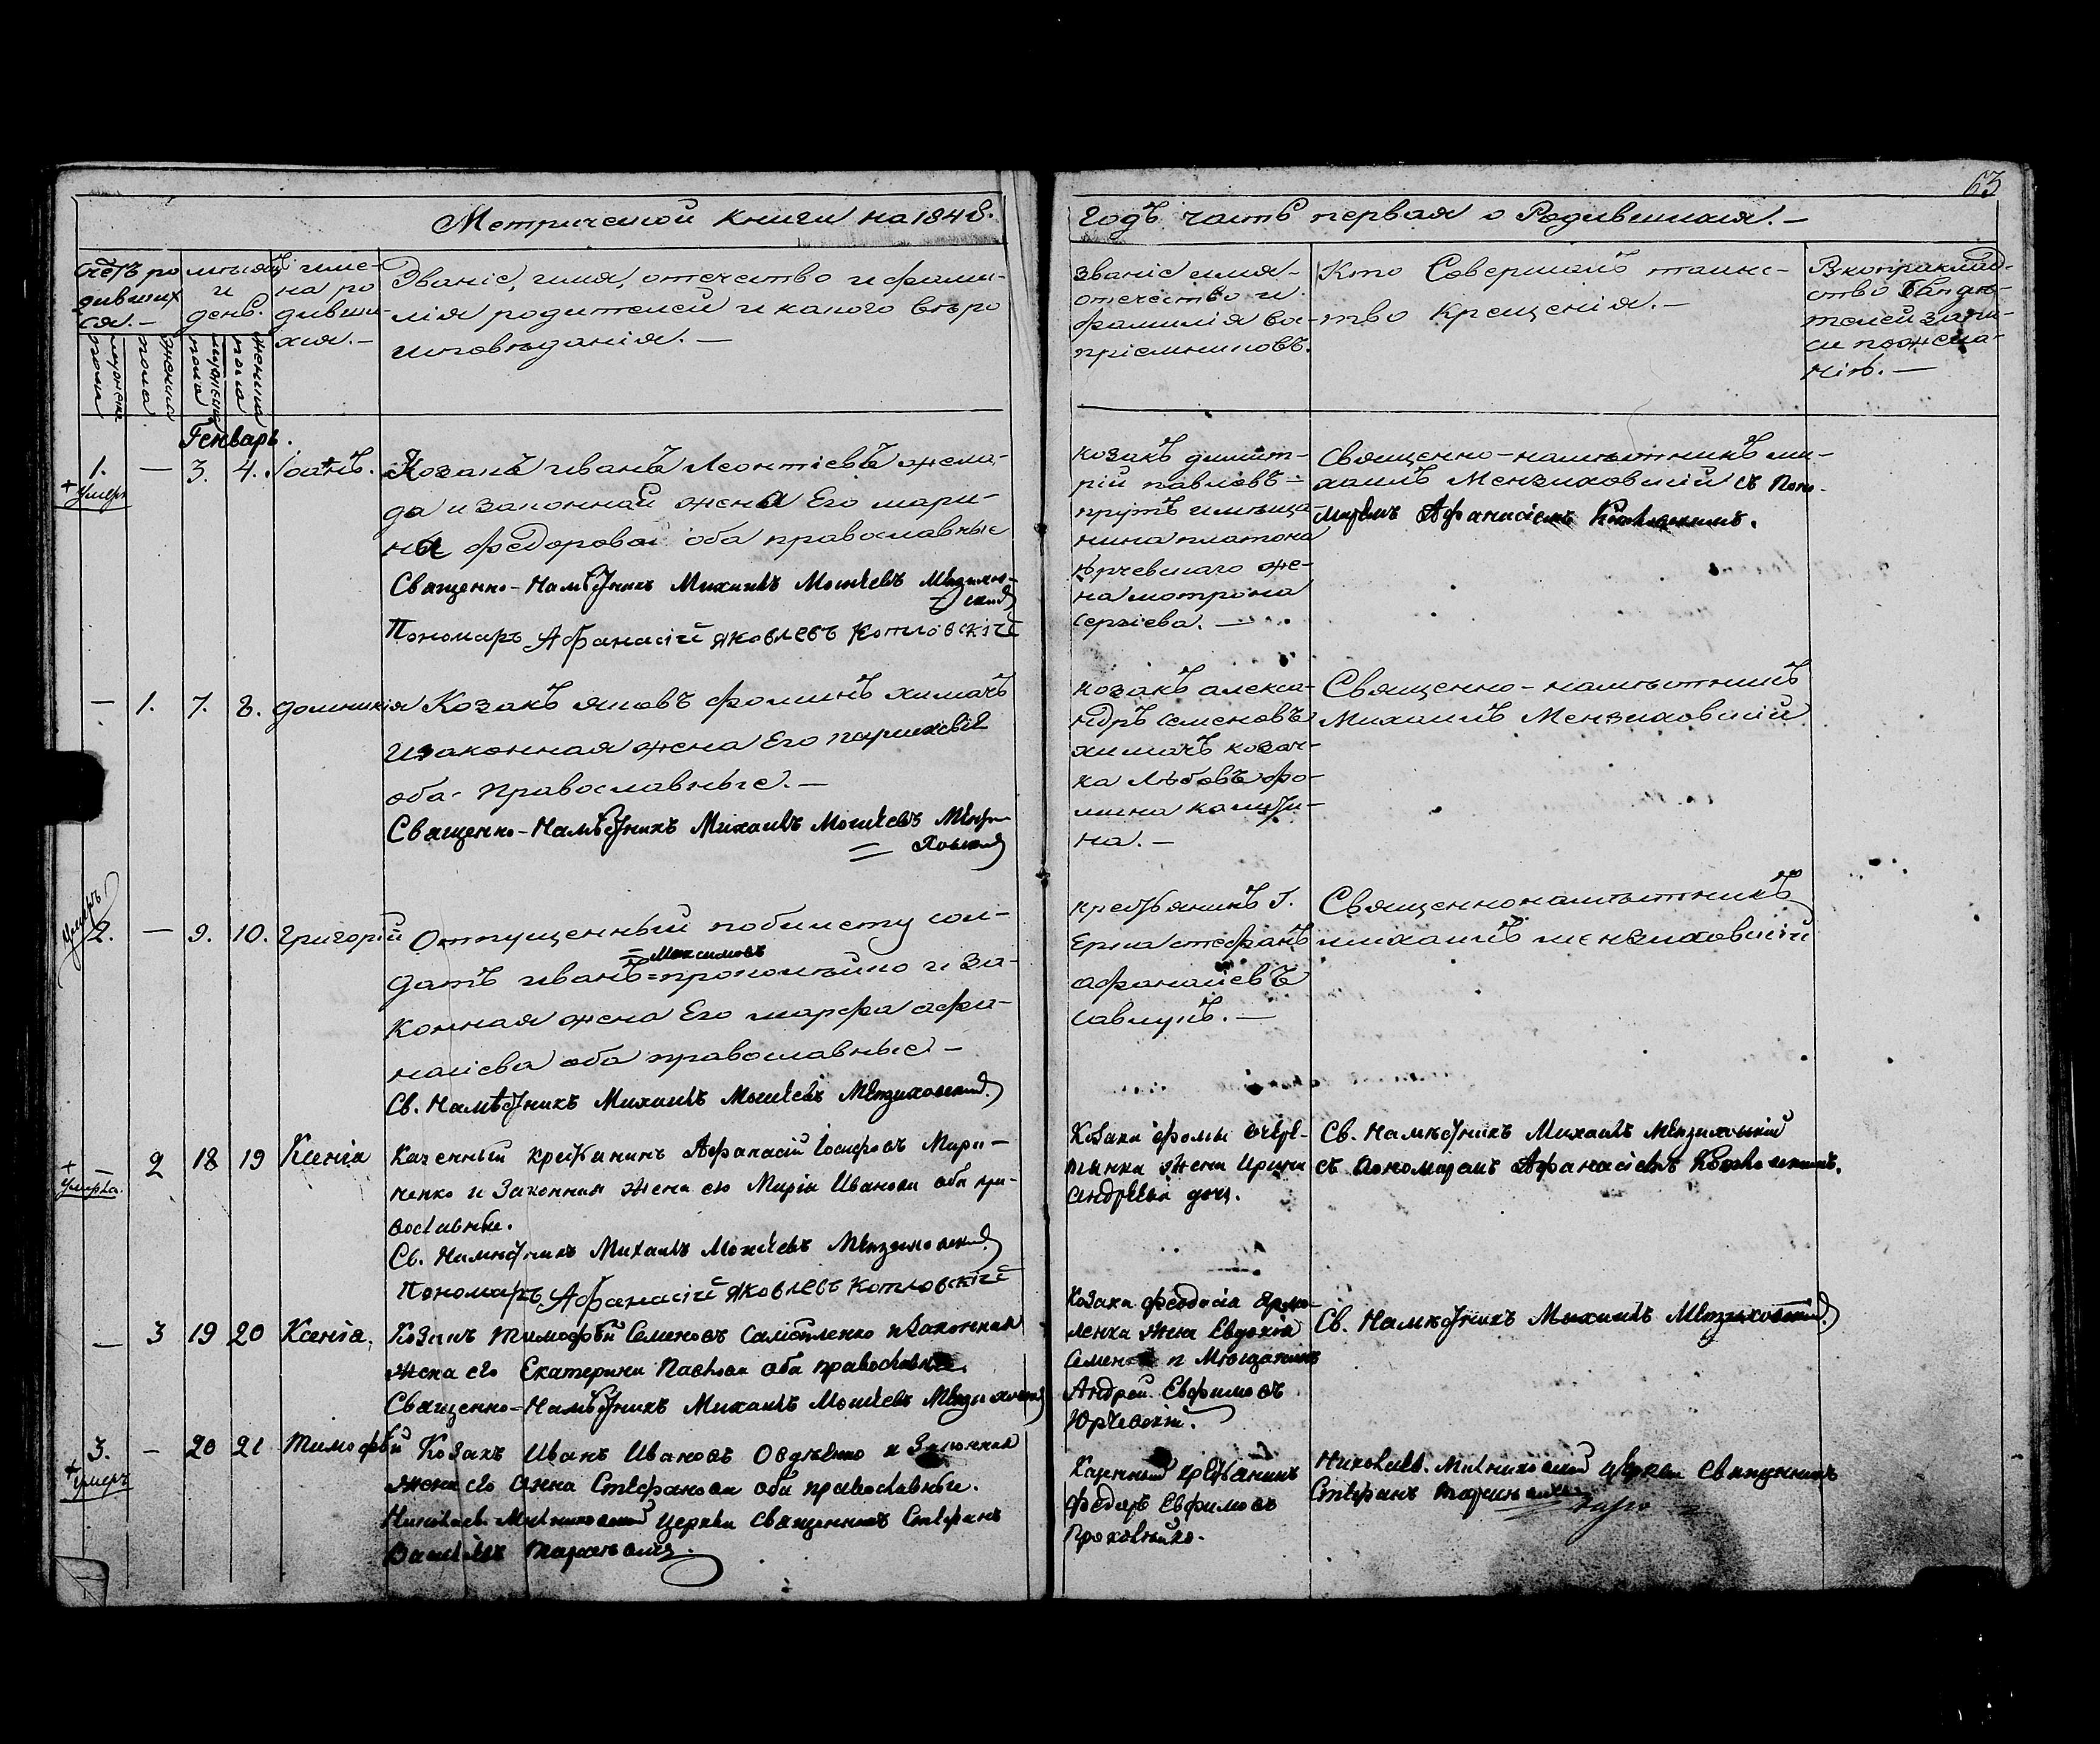 63
Метрической книги на 1848.
Годъ часть первая о Родившихся. —
Счетъ ро
дивших
ся. —
мужеска
пола
женска
пола
мѣсяцъ
и
день.
мужеска
пола
женска
пола
име-
на ро
дивши-
хся. —
Званіе, имя, отечество и фами-
лія родителей и какого вѣро
исповѣданія. —
званіе имя-
отечество и
фамилія во-
спріемниковъ.
Кто Совершалъ таинс-
тво крещенія. —
Генварь.
1. — 3. 4. Іоанъ.
+ умеръ
Козакъ иванъ Леонтіевъ
и законная жена Его мари-
на федорова оба православные
Священно-Намѣстникъ Михаилъ Моисіевъ
Пономарь Афанасій Яковлевъ Котловскій
козакъ димит-
рій павловъ
платона
же-
на мотрона
сергіева. —
Священно-намѣстникъ ми-
хаилъ Мензиховскій съ Поно-
маремъ Афанасіемъ Котловскимъ.
— 1. 7. 8. домникія
Козакъ яковъ фоминъ химачъ
и законная жена Его
оба православные. —
Священно-Намѣстникъ Михаилъ Моисіевъ
козакъ алекса-
ндръ семеновъ
химачъ козач-
ка
мина
на. —
Священно-намѣстникъ
Михаилъ Мензиховскій
умеръ
2. — 9. 10. григорій
Отпущенный по билету сол-
Максимовъ
датъ иванъ и за-
конная жена Его марфа афа-
насіева оба православные —
Св. Намѣстникъ Михаилъ Моисіевъ Мензиховскій
крестьянинъ Г.
стефанъ
афанасіевъ
савлукъ. —
Священнонамѣстникъ
михаилъ мензиховскій
— 2 18 19 Ксенія
+ умерла.
Казенный крестьянинъ Афанасій Іосифовъ Мари-
ченко и Законная жена его Марія Иванова оба пра-
вославные.
Св. Намѣстникъ Михаилъ Моисіевъ Мензиховскій
Пономарь Афанасій Яковлевъ Котловскій
Козака фомы
жена Ирина
андреева дочь.
Св. Намѣстникъ Михаилъ Мензиховскій
съ пономаремъ Афанасіемъ Котловскимъ.
— 3 19 20 Ксенія.
Козакъ Тимофѣй Семеновъ Самойленко и Законная
жена его Екатерина Павлова оба православные.
Священно-Намѣстникъ Михаилъ Моисіевъ Мензиховскій
Козака феодосія Ярмо-
ленка жена Евдокія
Семенова и Мѣщанинъ
Андрей Евфимовъ
Юрчевскій.
Св. Намѣстникъ Михаилъ Мензиховскій
3. — 20 21 Тимофѣй
+ умеръ
Козакъ Иванъ Ивановъ и Законная
жена его Анна Стефанова оба православные.
церкви священникъ Стефанъ
Казенный крестьянинъ
федоръ Евфимовъ
церкви священникъ
Стефанъ